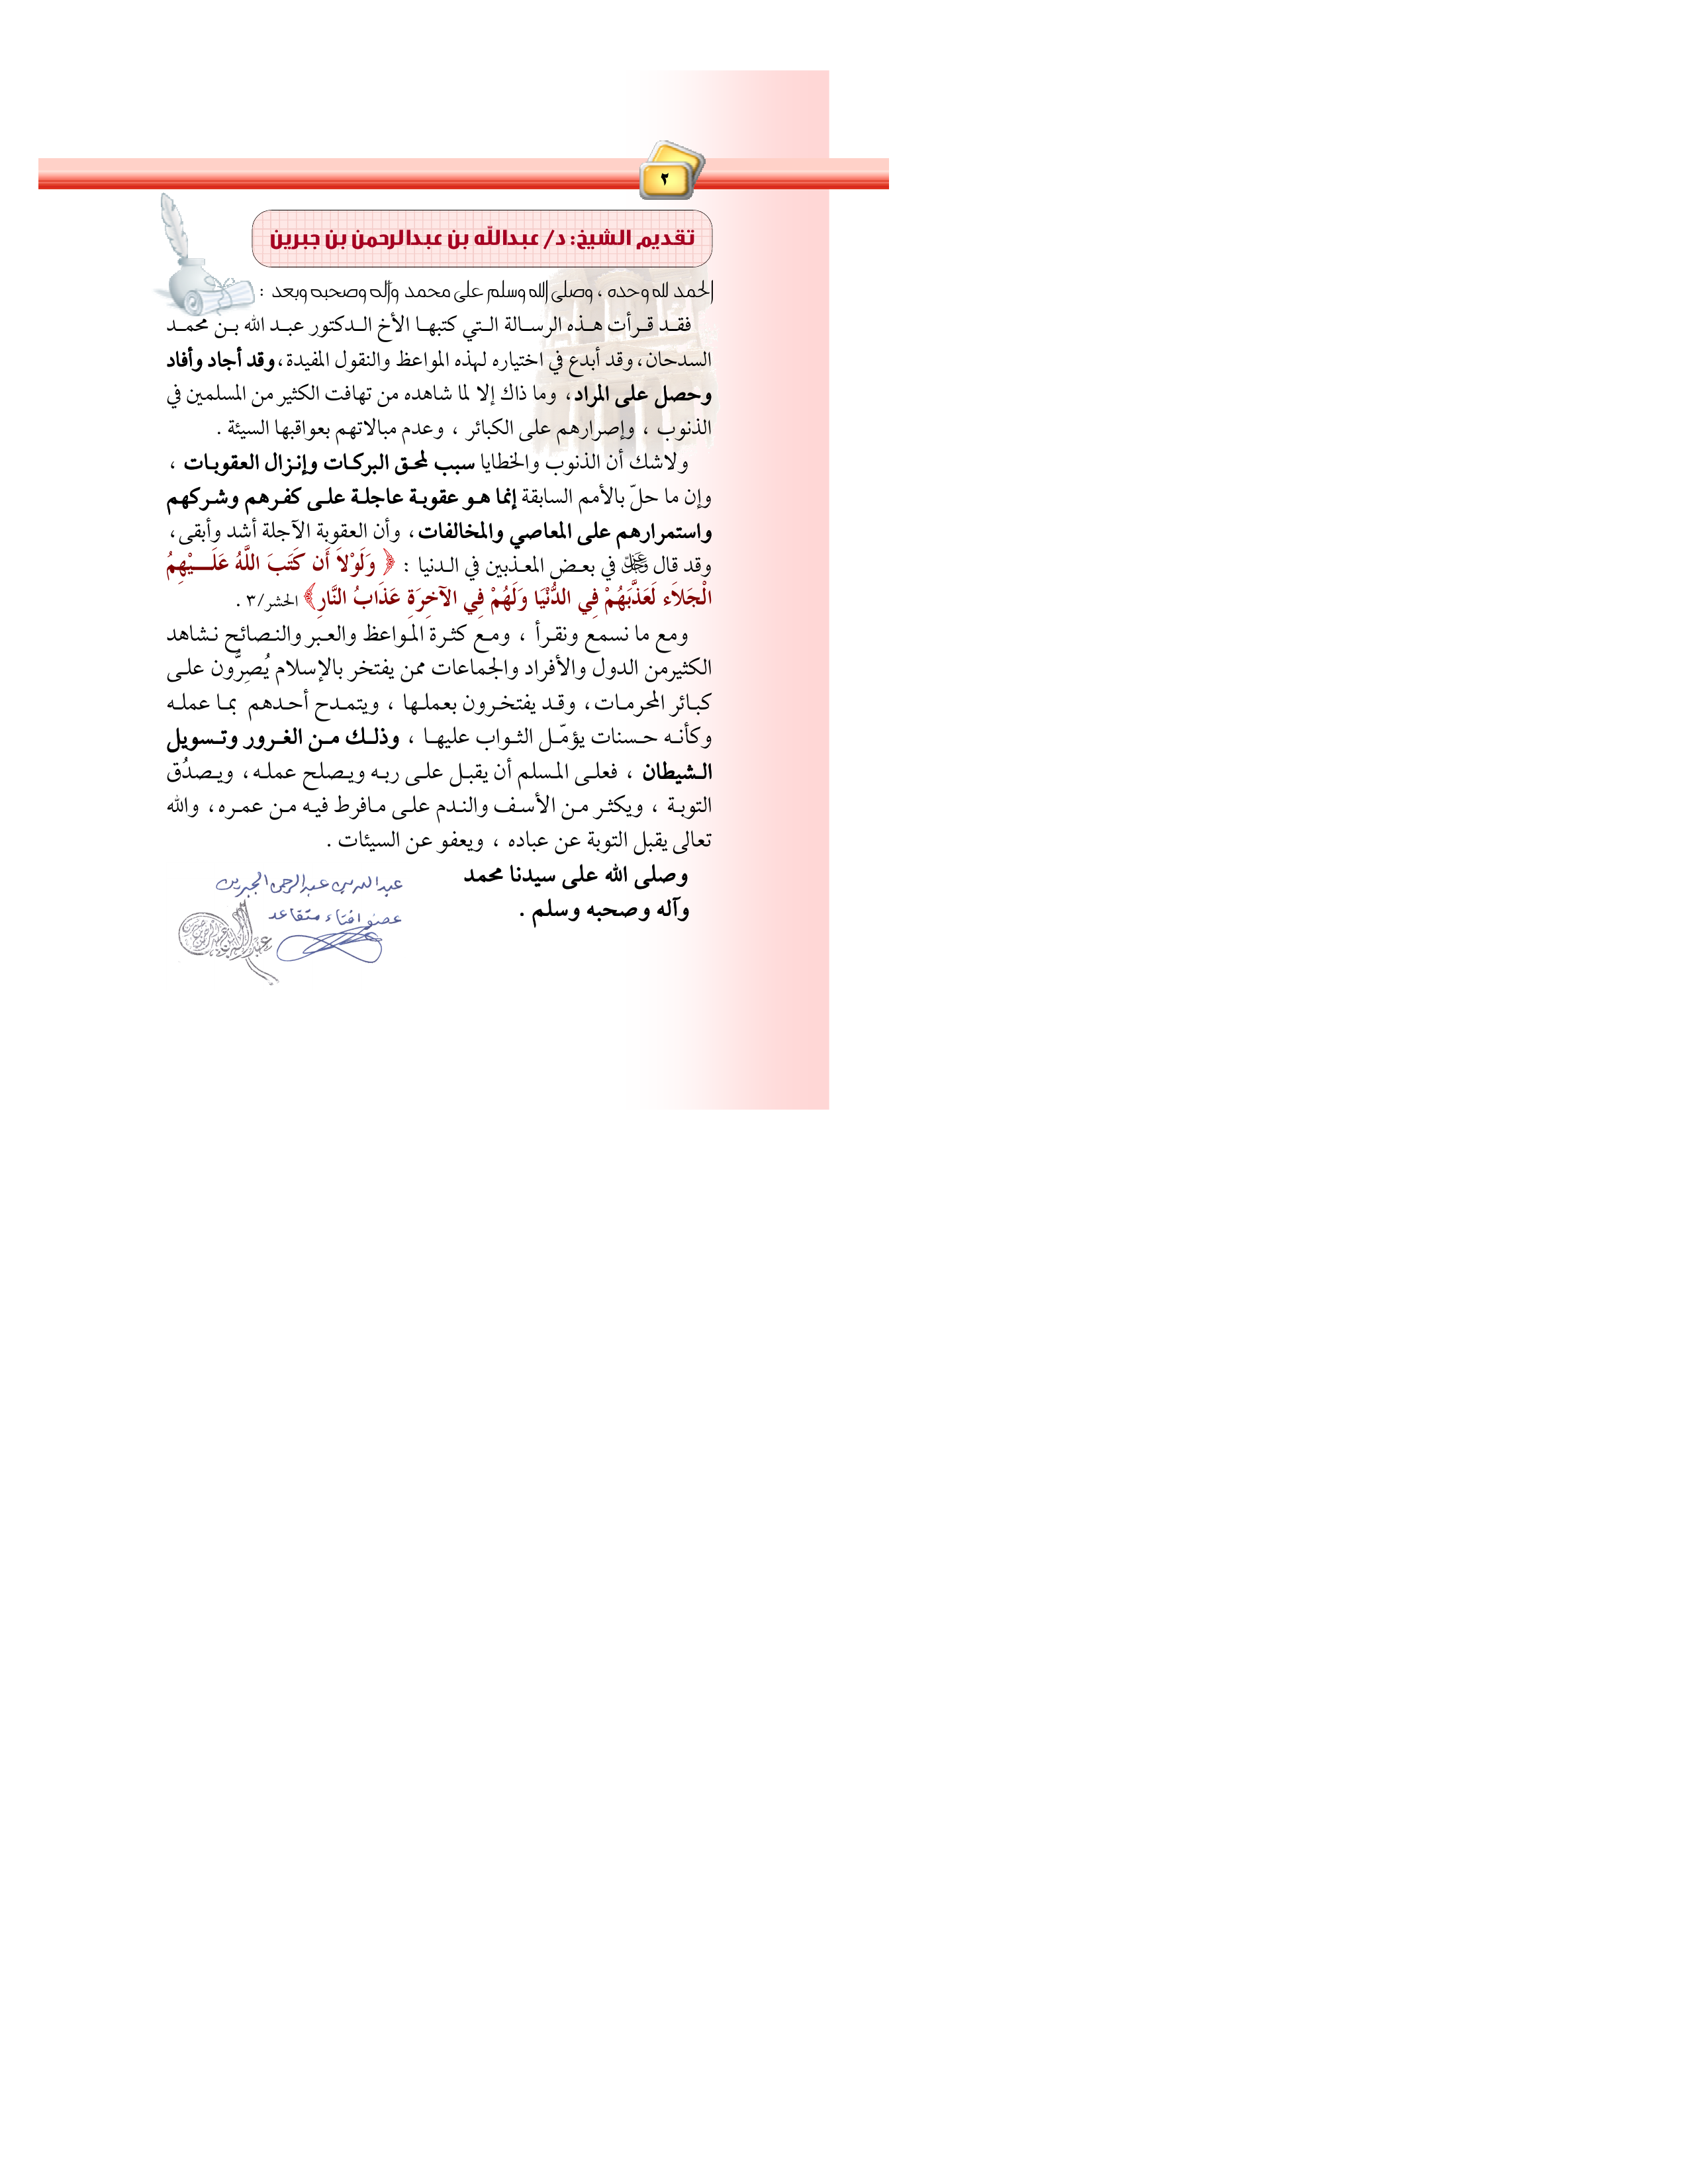 ٢
تقديم الشيخ: د/ عبدالله بن عبدالرحمن بن جبرين
الحمد لله وحده ، وصلى الله وسلم على محمد وآله وصحبه وبعد :
فقـد قـرأت هـذه الرسـالة الـتي كتبهـا الأخ الـدكتور عبـد الله بـن محمـد
السدحان، وقد أبدع في اختياره لهذه المواعظ والنقول المفيدة، وقد أجاد وأفاد
وحصل على المراد، وما ذاك إلا لما شاهده من تهافت الكثير من المسلمين في
الذنوب ، وإصرارهم على الكبائر ، وعدم مبالاتهم بعواقبها السيئة .
ولاشك أن الذنوب والخطايا سبب لمحـق البركـات وإنـزال العقوبـات ،
وإن ما حلّ بالأمم السابقة إنما هـو عقوبـة عاجلـة علـى كفـرهم وشـركهم
واستمرارهم على المعاصي والمخالفات، وأن العقوبة الآجلة أشد وأبقى،
وقد قال ﷻ في بعـض المعـذبين في الـدنيا : ﴿ وَلَوْلاَ أَن كَتَبَ اللَّهُ عَلَـــيْهِمُ
الْجَلاَء لَعَذَّبَهُمْ فِي الدُّنْيَا وَلَهُمْ فِي الآخِرَةِ عَذَابُ النَّارِ﴾ الحشر/٣ .
ومع ما نسمع ونقـرأ ، ومـع كثـرة المـواعظ والعـبر والنـصائح نـشاهد
الكثيرمن الدول والأفراد والجماعات ممن يفتخر بالإسلام يُصِرُّون علـى
كبـائر المحرمـات، وقـد يفتخـرون بعملـها ، ويتمـدح أحـدهم بمـا عملـه
وكأنـه حـسنات يؤمّـل الثـواب عليهـا ، وذلـك مـن الغـرور وتـسويل
الـشيطان ، فعلـى المـسلم أن يقبـل علـى ربـه ويـصلح عملـه، ويـصدُق
التوبـة ، ويكثـر مـن الأسـف والنـدم علـى مـافرط فيـه مـن عمـره، والله
تعالى يقبل التوبة عن عباده ، ويعفو عن السيئات .
وصلى الله على سيدنا محمد
وآله وصحبه وسلم .
عبدالله بن عبدالرحمن الجبرين
عضو افتاء متقاعد